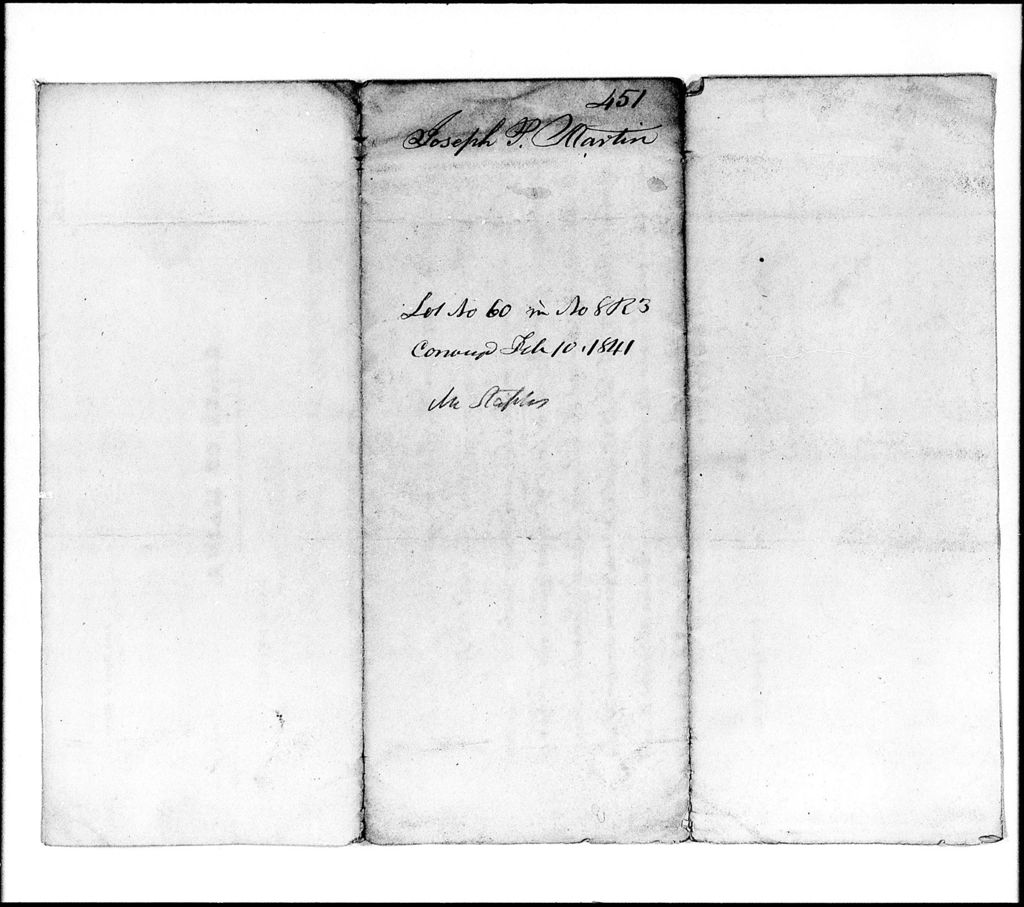 451
Joseph P. Martin
Lot No 60 in No 8 R 3
Conveyed Feb 10. 1841
Mr Staples